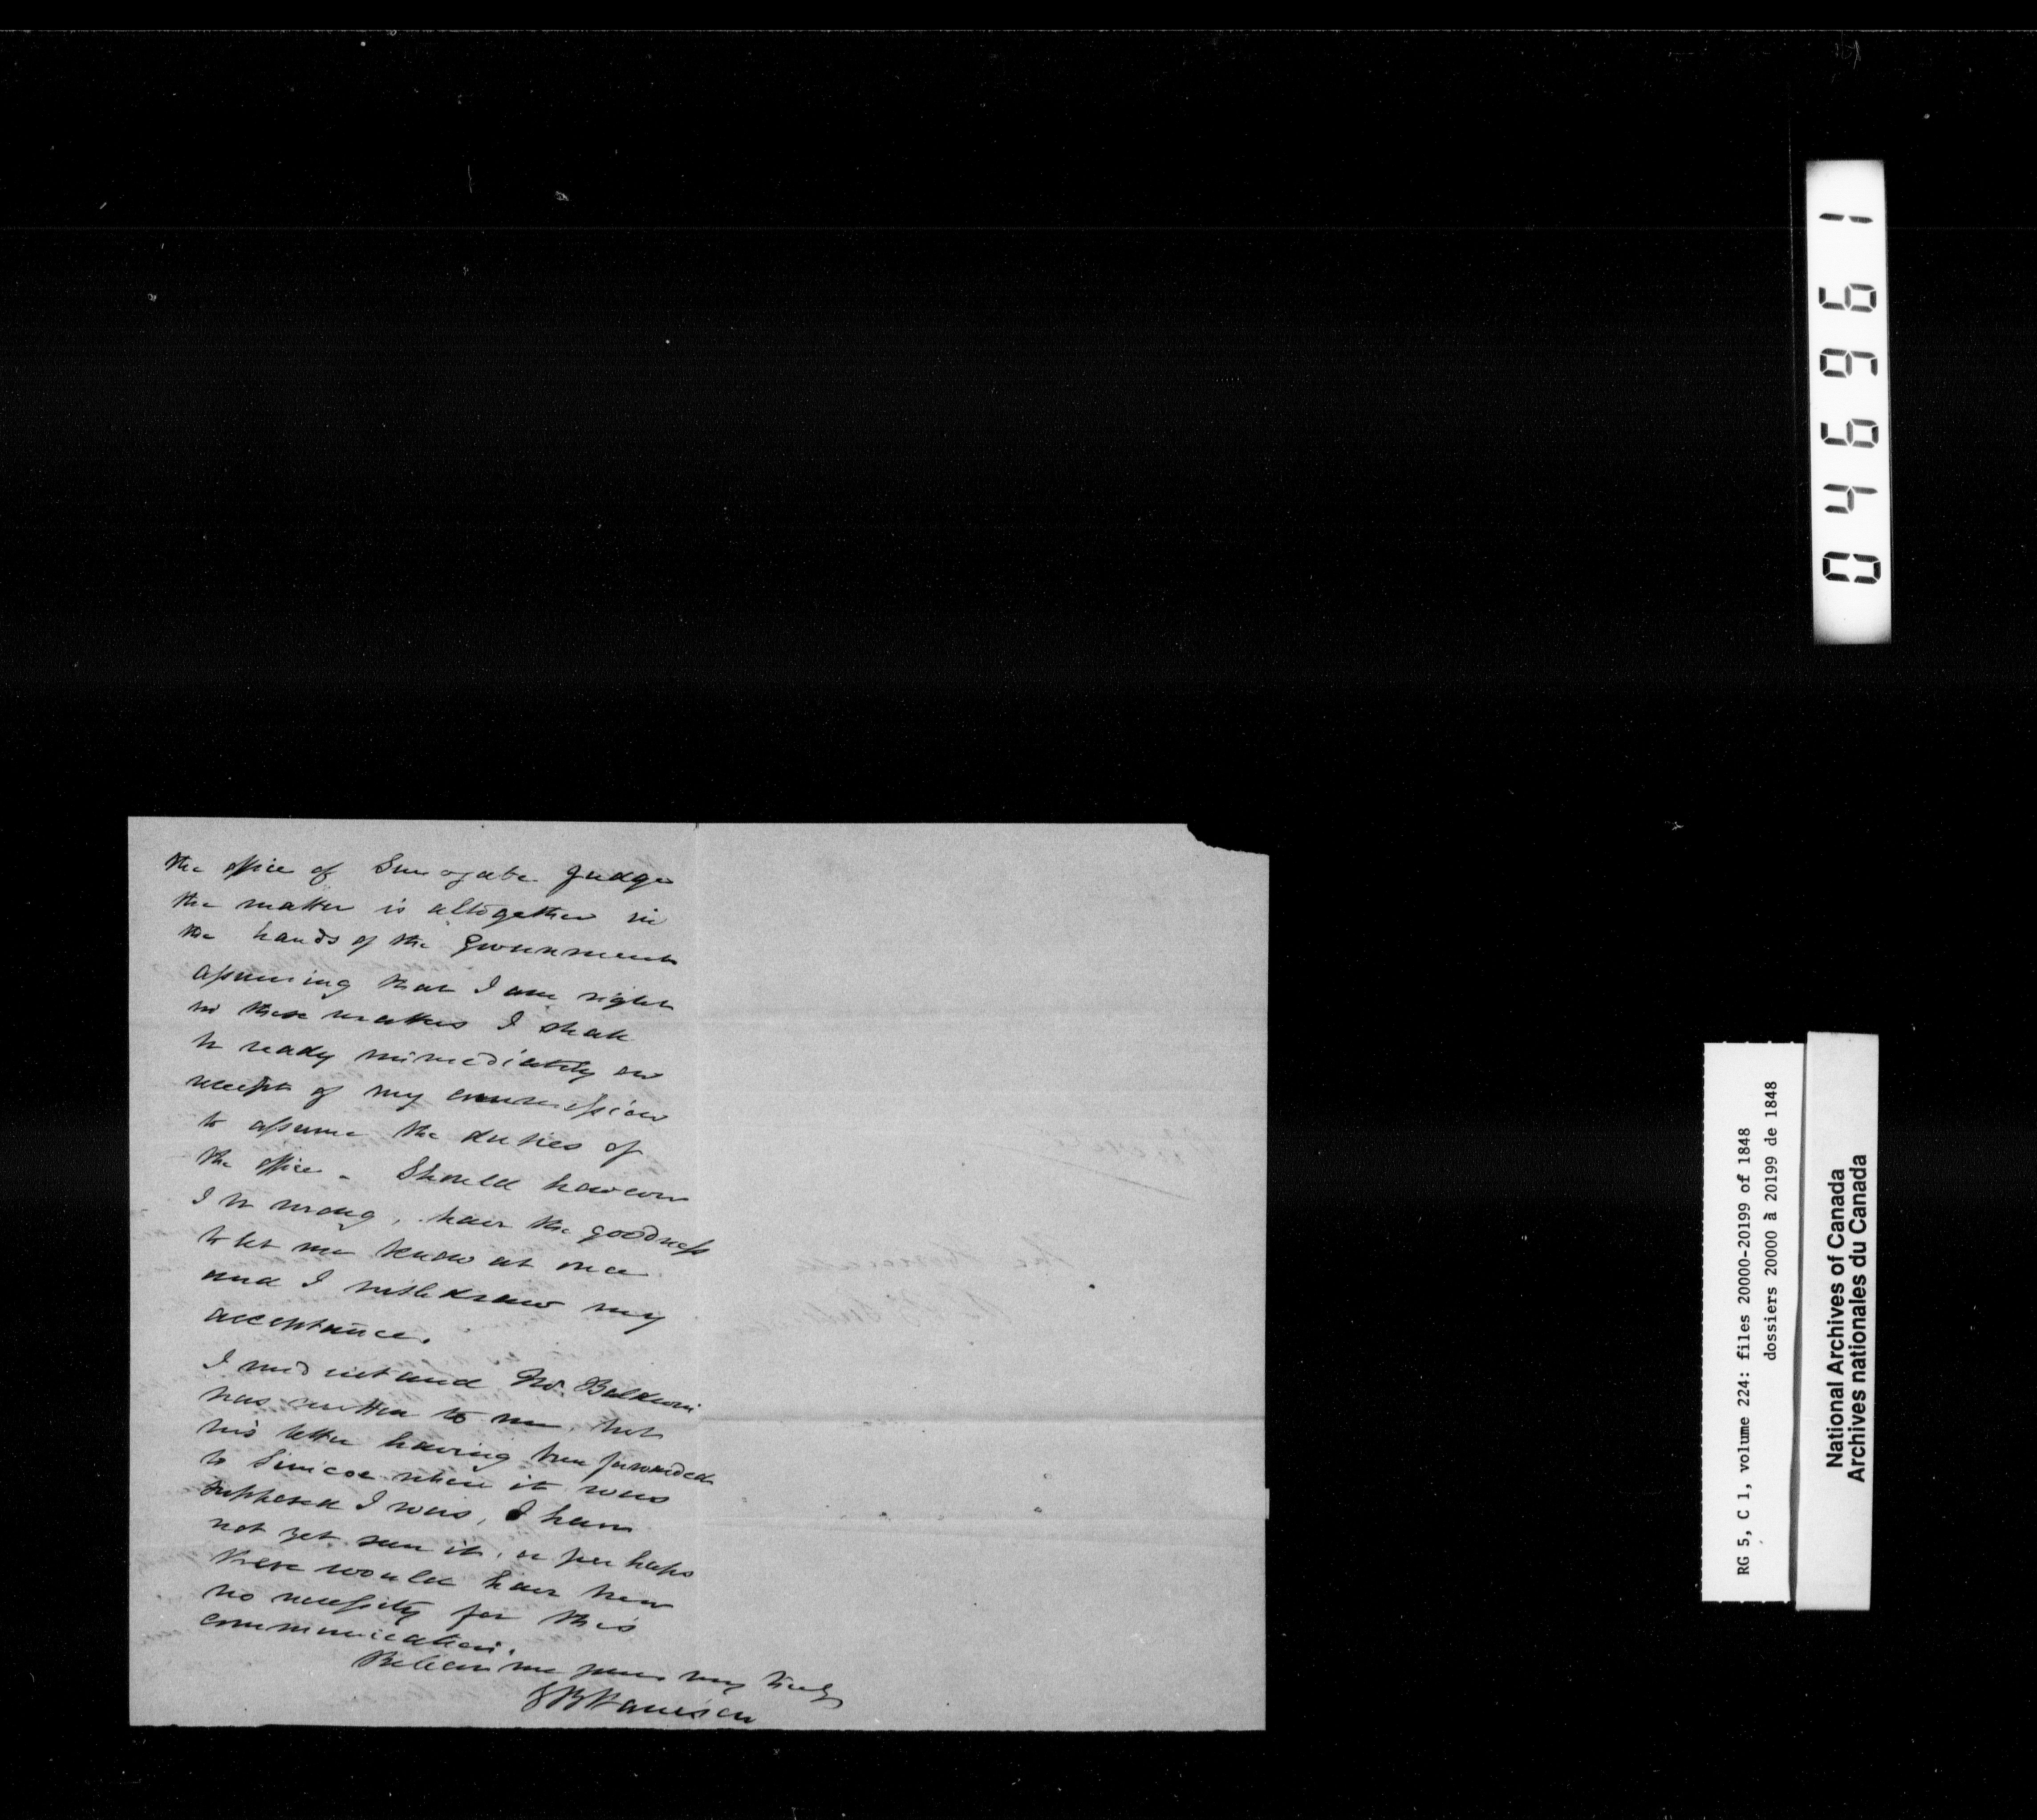 the office of Surrogate Judge
the matter is altogether in
the hands of the Government
assuming that I am right
in these matters I shall
be ready immediately on
receipt of my commission
to assume the duties of
the office - Should however
I be wrong, have the goodness
to let me know at once
and I withdraw my
acceptance.
I understand Mr. Baldwin
has written to me, but
his letter having been forwarded
to Simcoe where it was
supposed I was, I have
not yet seen it, or perhaps
there would have been
no necessity for this
communication.
Believe me yours very truly
S B Harrison
046961
RG 5, C 1, volume 224: files 20000-20199 of 1848
dossiers 20000 à 20199 de 1848
National Archives of Canada
Archives nationales du Canada